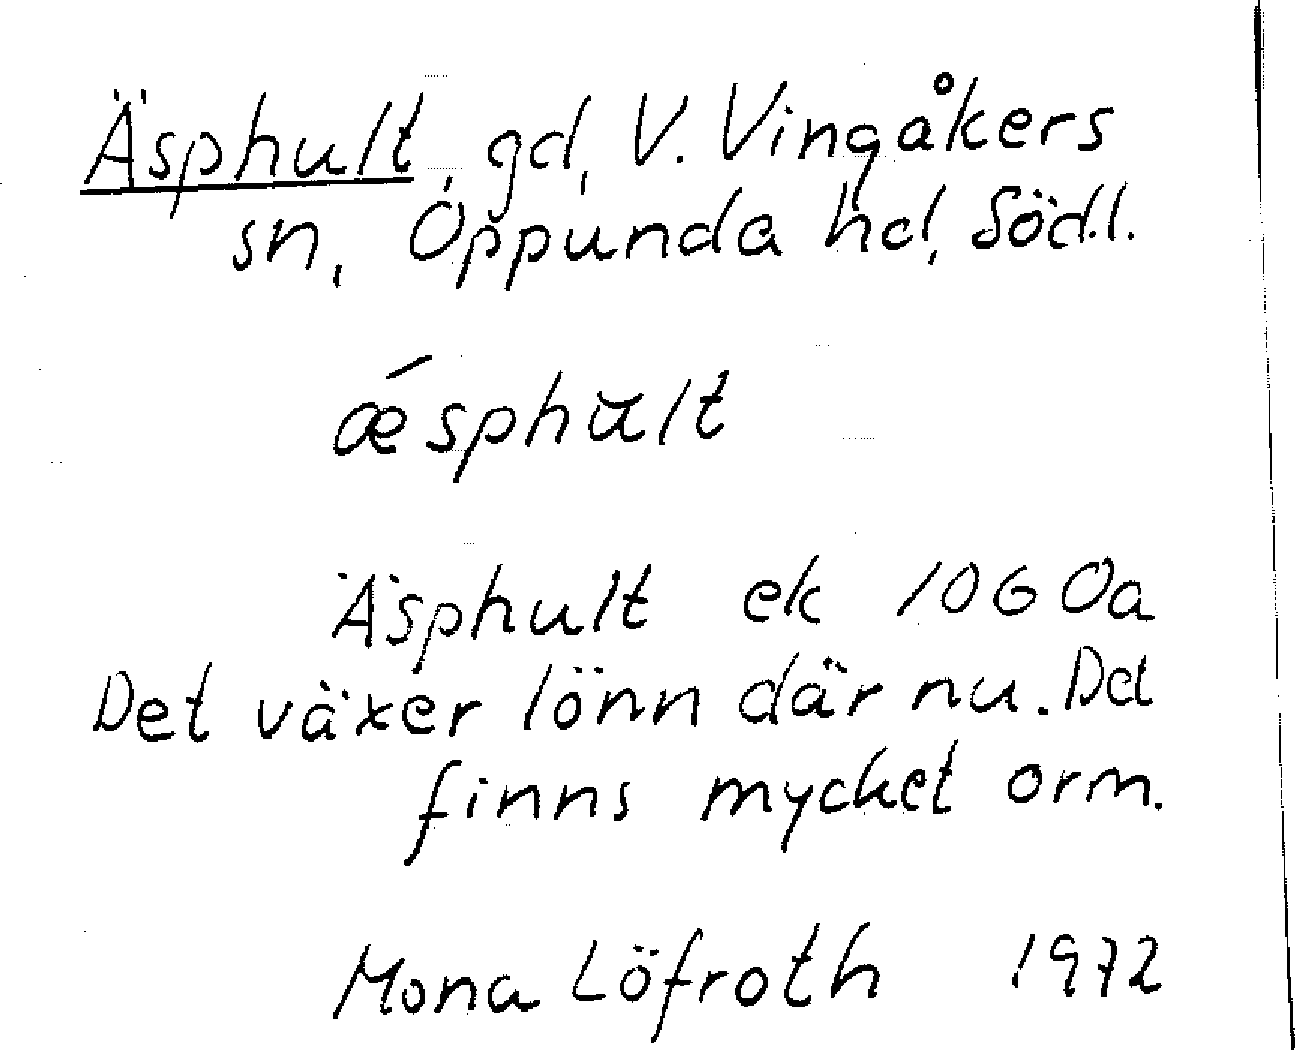 Äsphult, gd, V. Vingåkers
sn, Oppunda hd, Södl.
ǽsphu̇lt
Äsphult ek 10G Oa
Det växer lönn där nu. Det
finns mycket orm.
Mona Löfroth 1972